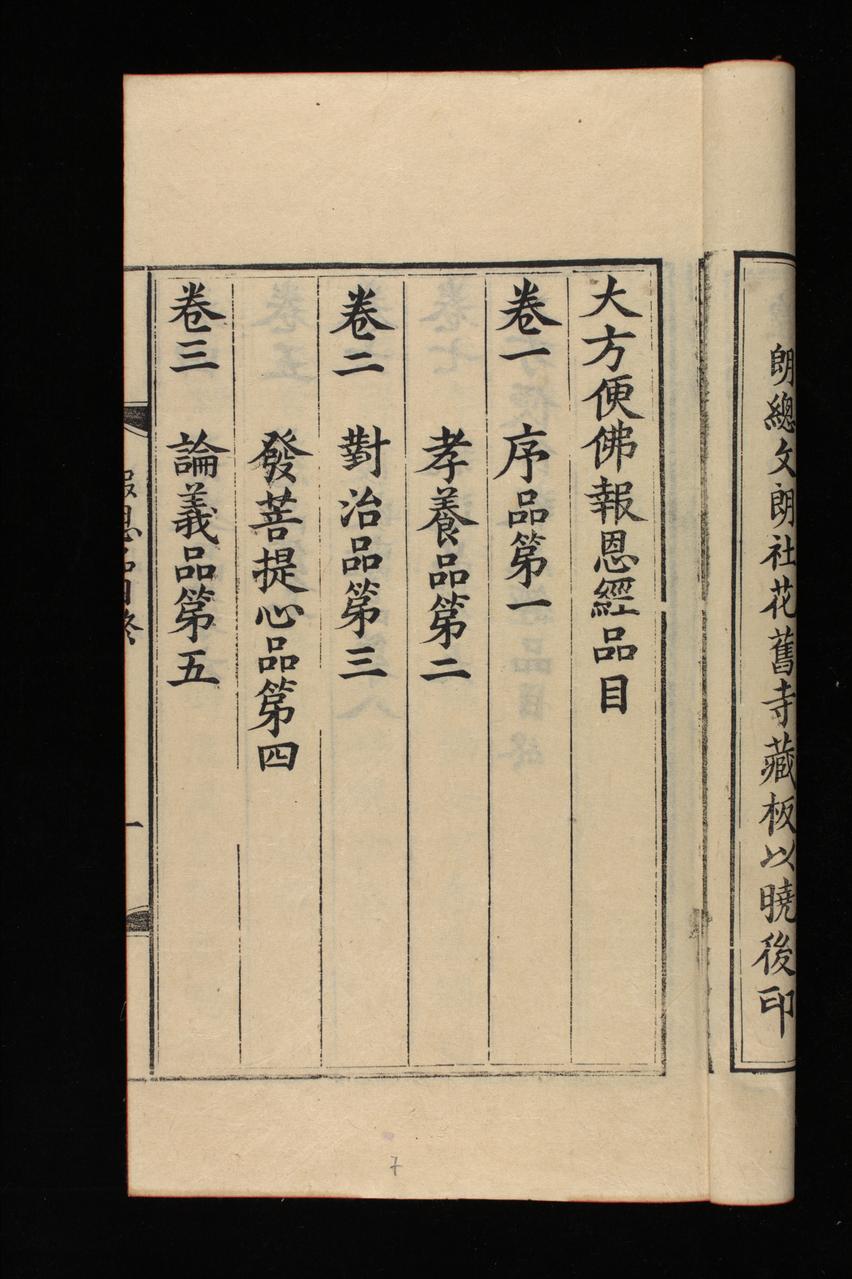 朗總文朗社花舊寺藏板以曉後印
大方便佛報恩經品目
卷一 序品第一
孝養品第二
卷二 對治品第三
發菩提心品第四
卷三 論義品第五
報恩品目終
一
7